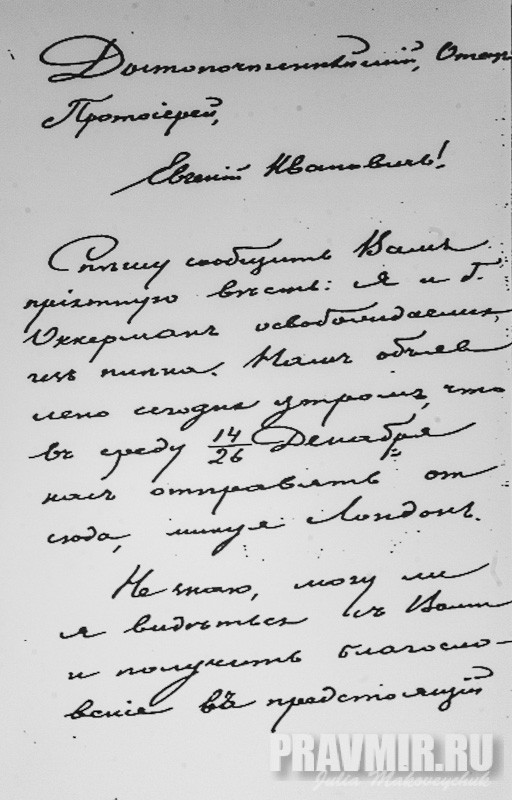 Достопочтеннѣйшій, Отецъ
Протоіерей,
Евгеній Ивановичъ!
Спѣшу сообщить Вамъ
пріятную вѣсть: я и г.
Уккерманъ освобождаемся,
изъ плѣна. Намъ объяв
лено сегодня утромъ, что
въ среду 14/26 Декабря
насъ отправятъ от
сюда, минуя Лондонъ.
Не знаю, могу ли
я видѣться съ Вами
и получить благосло-
веніе въ предстоящій
PRAVMIR.RU
Julia Makoveychuk